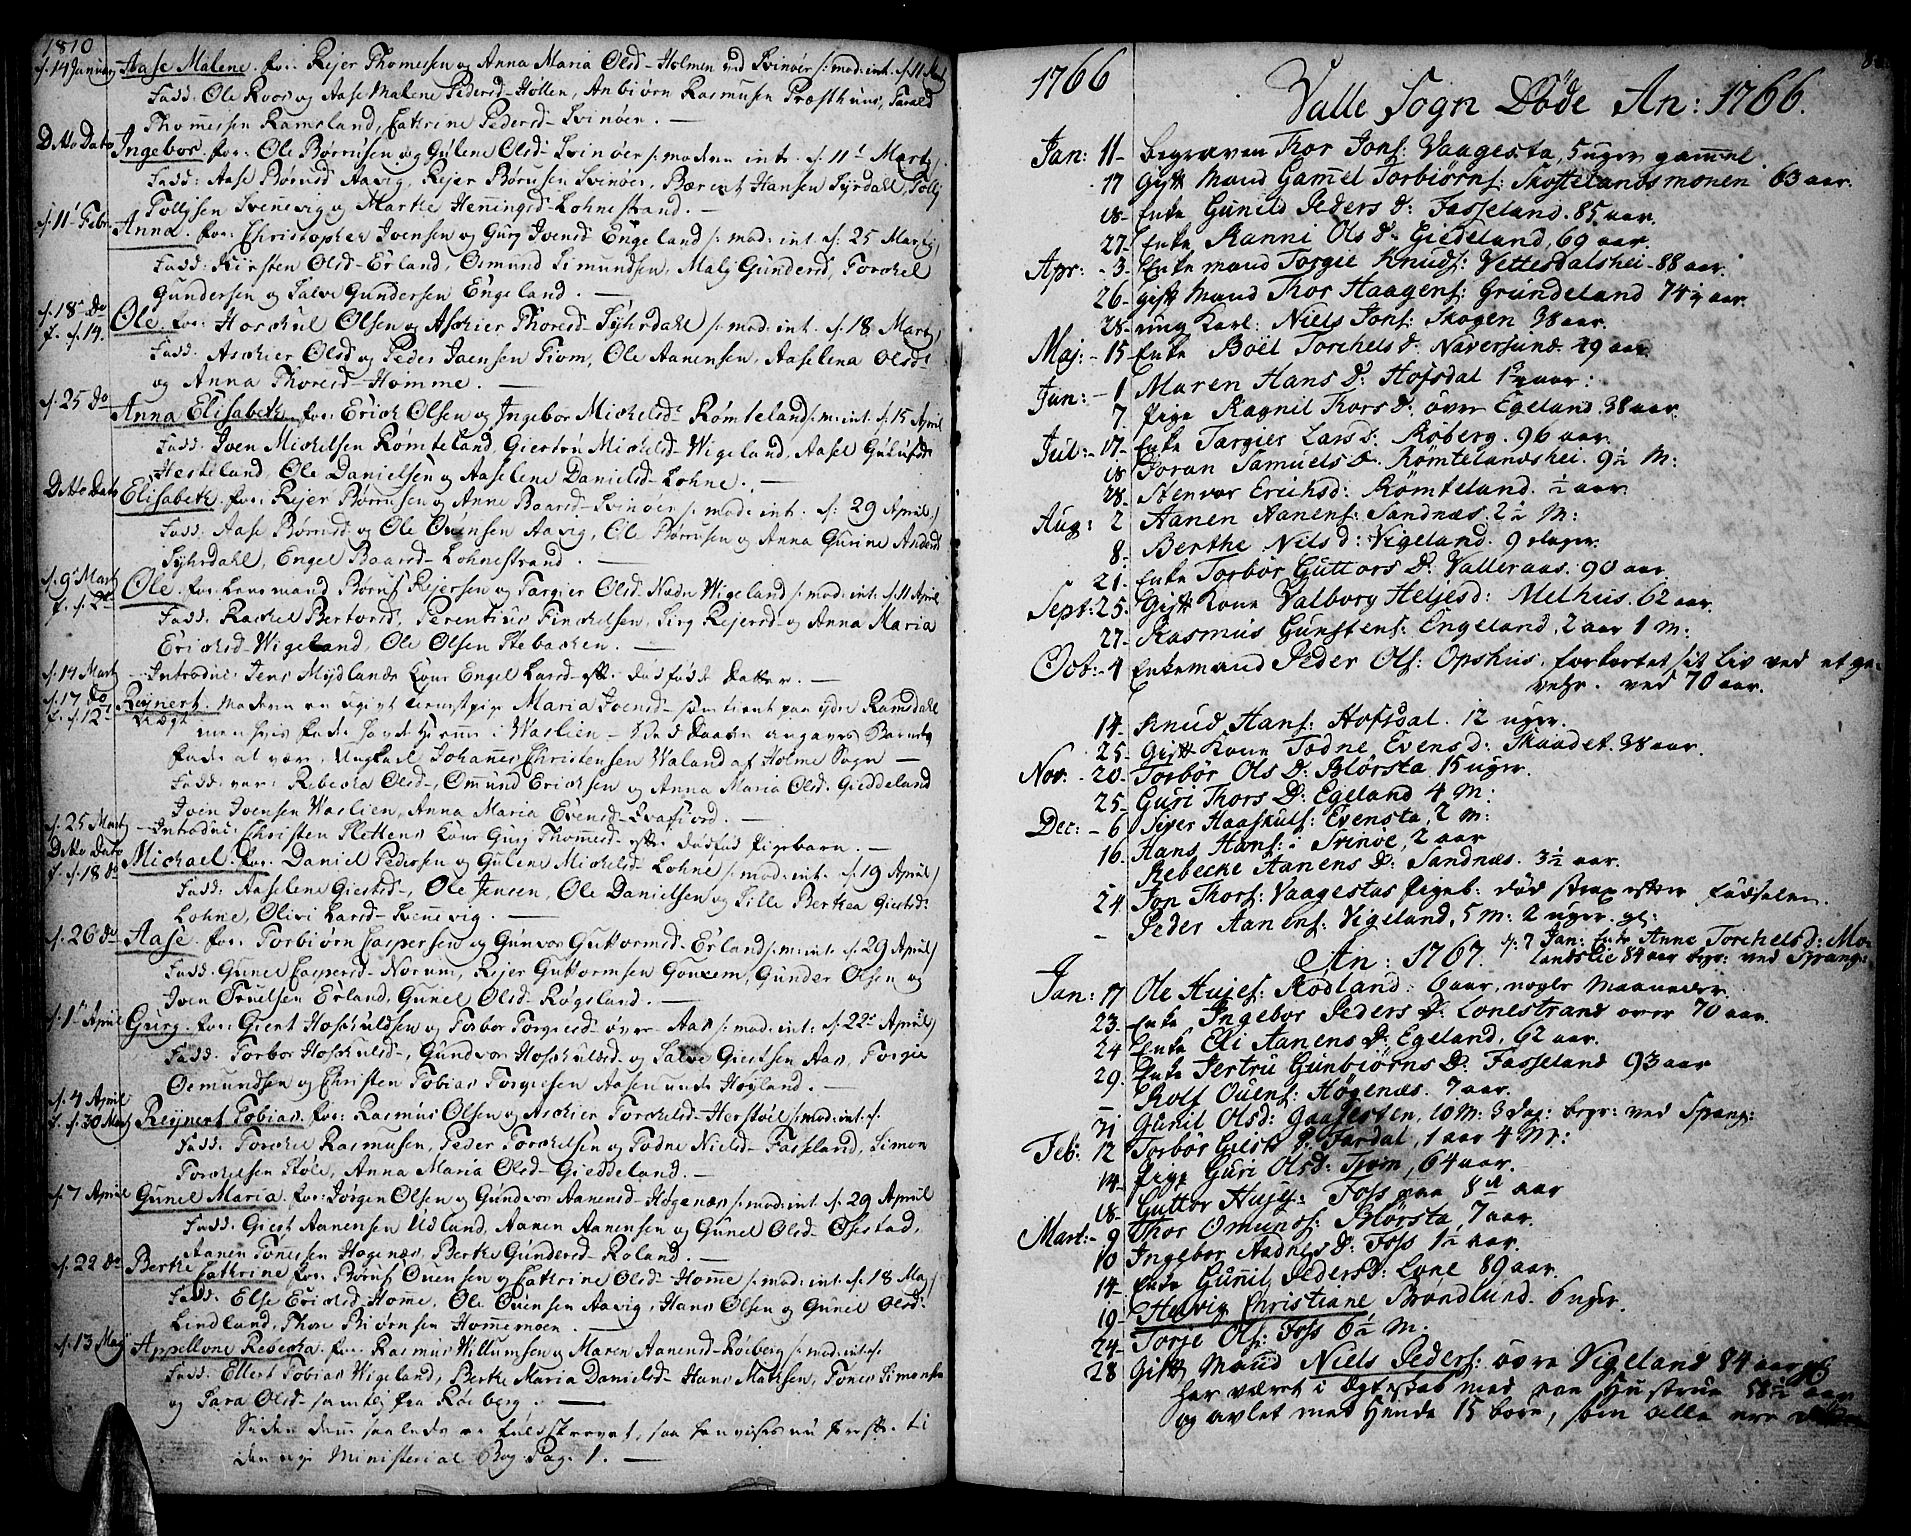 1810
d. 14 Januarij Aase Malene. for: Rejer Thomesen og Anna Maria Olsd- Holmen ved Svinøer /: mod: int. d. 11 Mart
Fadd: Ole Roos og Aase Malene Pedersd- Høllen, Anbiørn Rasmusen Præsthuus, Tarald
Thomessen Ramsland, Cathrine Pedersd- Svinøer. —
Ditto Dato Ingebor. for: Ole Børrusen og Gulene Olsd- Svinøer /: moderen intr. d. 11 Martj
Fadd: Aase Børusd Aavig, Rejer Børusen Svinøer, Bærent Hansen Syrdal, Tollij
Tollijsen Svennevig og Marthe Henningsd- Lohnestrand. —
d. 11 Febr. Anna. for: Christopher Ivensen og Gurj Ivensd Engeland /: mod: int. d: 25 Martij
Fadd: Kirsten Olsd- Erland, Osmund Simundsen, Malj Gundersd, Torckel
Gundersen og Salve Gundersen Engeland. —
d. 18 Do Ole. for: Horskul Olsen og Asckier Thoresd- Syhrdahl /: mod: int. d. 18 Martij
f. d. 14. Fadd: Asckier Olsd og Peder Joensen Fiom, Ole Aanensen, Aaselena Olsd-
og Anna Thoresd- Homme. —
d. 25 Do Anna Elisabeth. for: Erick Olsen og Ingebor Mickelsd- Rømteland /: m: int. d. 15 April
Fadd: Iven Mickelsen Rømteland, Giertru Mickelsd- Wigeland, Aasel
Hesteland, Ole Danielsen og Aaselene Danielsd- Lohne. —
Ditto Dato Elisabeth. for: Rejer Børrusen og Anne Baarsd- Svinøer /: mod: int. d: 29 April
Fadd: Aase Børusd og Ole Ouensen Aavig, Ole Børrusen og Anna Gurine Andersd
Syhrdahl, Engel Baarsd- Lohnestrand. —
d. 9 Mart Ole. for: Lensmand Børuf Rejersen og Targier Olsd. Nedre Wigeland /: mod: int. d. 11 April
f. d. 2 Fadd: Rachel Bertorsd, Terentius Finckelsen, Sirj Rejersd- og Anna Maria
Ericksd- Wigeland, Ole Olsen Stebacken. —
d. 14 Mart — Introduc: Jens Mydlands Kone Engel Larsd- efter dødfødt Datter. —
d. 17 Do Reijnert. Moderen en ugivt Pige Maria Ivensd-
f. d. 12
Fadder at være, Ungkarl Johannes Christensen Waland af Holme Sogn —
Fadd: vare: Rebecka Olsd-, Omund Ericksen og Anna Maria Olsd- Gieddeland
Iven Ivensen Waslien, Anna Maria Evensd- Svafiord. —
d. 25 Mart — Introduc: Christen Slettens Kone Gurj Thomesd- efter dødfød Pigebarn. —
Ditto Dato Michael. for: Daniel Pedersen og Gulene Mickelsd- Lohne /: mod: int. d. 19 April
f. d. 18 do Fadd: Aaselene Giertsd-, Ole Jensen, Ole Danielsen og Sille Berthea Giertsd-
Lohne, Olivi Larsd- Svennevig. —
d. 26 do Aase. for: Torbiørn Caspersen og Gunvor Guttormsd- Erland /: m: int. d. 29 April
Fadd: Gunel Caspersd- Norum, Rejer Guttormsen, Gunder Olsen og
Iven Truelsen Erland, Gunel Olsd- Røgsland. —
d. 1 April Gurj. for: Giert Hosckuldsen og Torbor Torgiersd- over Aas /: mod: int: d. 22 April
Fadd: Torbor Hosckulsd-, Gundvor Hosckulsd- og Salve Giertsen Aas, Torgie
Osmundsen og Christen Tobias Torgiesen Aasen under Høyland. —
d. 4 April
f. d. 30 Mart Reijnert Tobias. for: Rasmus Olsen og Asckier Torckelsd- Herstøl /: mod: int: d.
Fadd: Torckel Rasmusen, Peder Torckelsen og Todne Nielsd- Fasseland, Simon
Torckelsen Støle, Anna Maria Olsd- Gieddeland. —
d. 7 April Gunel Maria. for: Jørgen Olsen og Gundvor Aanensd- Høgenæs /: mod: int: d. 29 April
Fadd: Giert Aanensen Udland, Aanen Aanensen og Gunel Olsd- Osestad,
Aanen Tønessen Høgenæs, Berthe Gundersd- Roland. —
d. 22 do Berthe Cathrine for: Børuf Ouensen og Cathrine Olsd- Homme /: mod: int. d. 18 Maj
Fadd: Else Ericksd- Homme, Ole Ouensen Aavig, Hans Olsen og Gunel Olsd-
Lindland, Thore Biørnsen Hommemoen. —
d. 13 Maij Appellone Rebecka. for: Rasmus Willumsen og Maren Aanensd- Røeberg /: mod: int: d.
Fadd: Ellert Tobias Wigeland, Berthe Maria Danielsd- Hans Mathsen, Tønes Simonsen
og Sara Olsd- samtlig fra Røeberg. —
Siden denne saaledes er fuldskrevet, saa henvises nu herefter til
den nye Ministerial Bog Pag: 1. —
1766
Valle Sogn Døde An: 1766.
Jan: 11- begraven Thor Jons: Vaagesta, 5 uger gammel.
17 Gift Mand Gamel Torbiørns: Skoftelandsmonen 63 aar.
18- Enke Gunild Peders D: Fasseland. 85 aar.
27- Enke Ranni Ols D: Giedeland, 69 aar.
Apr: - 3- Enkemand Torgie Knuds: Vettesdalshei- 88 aar.
26- gift Mand Thor Haagens: Grundeland 74 1/2 aar
28- ung Karl: Niels Jons: Skogen 38 aar.
Maj: - 15 Enke Boël Torchels D: Naversund- 49 aar
Jun: - 1 Maren Hans D: Hofsdal 1 1/2 aar:
7. Pige Ragnil Thors D: over Egeland. 38 aar.
Jul: - 17- Enke Targier Lars D: Røberg. 96 aar.
18 Joran Samuels D. Rømtelandshei. 9 1/2 M:
28- Stenvor Eriksd: Rømteland. 1/2 aar
Aug: 2 Aanen Aanens: Sandnæs. 2 1/2 M:
8. Berthe Nils D: Vigeland. 9 dager.
21. Enke Torbor Guttors D: Valleraas. 90 aar.
Sept: 25. Gift Kone Valborg Heljesd: Melhus. 62 aar.
27- Rasmus Gunstens: Engeland. 2 aar 1 M:
Octb: - 4 Enkemand Peder Ols: Opshus. forkortet sit Liv ved et ge-
vehr. ved 70 aar.
14. Knud Hans: Hofsdal. 12 uger.
25. Gift Kone Todne Evens D: Skaadet. 38 aar.
Nov. - 20- Torbor Ols D: Blørsta 15 uger.
25- Guri Thors D: Egeland 4 M:
Dec: - 6 Siver Haaskuls: Evensta, 2 M:
16. Hans Hans: i Svinøe, 2 aar
Rebecke Aanens D: Sandnæs. 3 1/2 aar.
24. Jon Thors: Vaagestas Pigeb: død strax efter fødselen.
- Peder Aanens: Vigeland, 5 M: 2 uger. gl:
An: 1767. d: 7 Jan: Enke Anne Torchelsd: Mo-
landslie 84 aar begr: ved Spang:
Jan: 17 Ole Hujes: Rødland: 6 aar, nogle Maaneder.
23. Enke Ingebor Peders D: Lonestrand over 70 aar.
24 Enke Eli Aanens D: Egeland, 62 aar.
29. Enke Jertru Gunbiørns D: Fasseland 93 aar
— Rolf Ouens: Høgenæs. 7 aar.
31 Gunil Olsd: Gaasesten, 10 M: 3 dag: begr: ved Spang:
Feb: 12 Torbor D: Fardal, 1 aar 4 M:
14- Pige Guri Olsd: Fiom, 64 aar.
18- Guttor Hujes: Foss paa 8de aar
Mart: - 9 Thor Omunds: Blørsta, 7 aar.
10 Ingebor Aadnes D: Foss 1 1/2 aar.
14- Enke Gunil Peders D: Lone 89 aar.
19- Helvig Christiane Brandlund- 6 uger.
24- Torje Ols: Foss 6 1/2 M.
28 Gift Mand Niels Peders: øvre Vigeland 84 aar
har været i Ægteskab med een Hustrue 58 1/2 aar
og avlet med Hende 15 børn, som alle ere